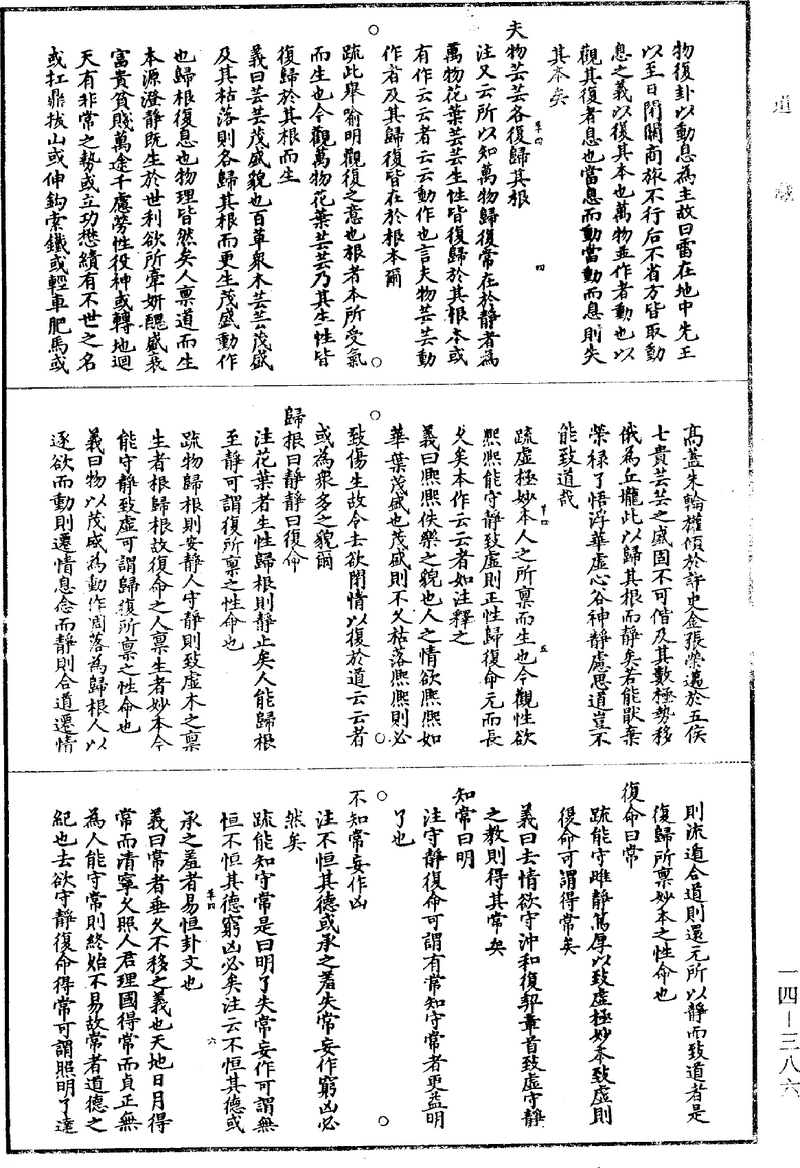 道藏
物復卦以動息為主故曰雷在地中先王
以至日閉關商旅不行后不省方皆取動
息之義以復其本也萬物並作者動也以
觀其復者息也當息而動當動而息則失
其本矣
夫物芸芸各復歸其根
注又云所以知萬物歸復常在於靜者為
萬物花葉芸芸生性皆復歸於其根本或
有作云云者云云動作也言夫物芸芸動
作者及其歸復皆在於根本爾
疏此舉喻明觀復之意也根者本所受氣
而生也今觀萬物花葉芸芸乃其生性皆
復歸於其根而生
義曰芸芸茂盛貌也百草衆木芸芸茂盛
及其枯落則各歸其根而更生茂盛動作
也歸根復息也物理皆然矣人禀道而生
本源澄靜既生於世利欲所牽妍醜盛衰
富貴貧賤萬途千慮勞性役神或轉地迴
天有非常之勢或立功懋績有不世之名
或扛鼎拔山或伸鈎索鐵或輕車肥馬或
高蓋朱輪權傾於許史金張榮邁於五侯
七貴芸芸之盛固不可偕及其數極勢移
俄為丘壠此以歸其根而靜矣若能猒棄
榮祿了悟浮華虛心谷神靜慮思道豈不
能致道哉
疏虛極妙本人之所禀而生也今觀性欲
熙熙能守靜致虛則正性歸復命元而長
久矣本作云云者如注釋之
義曰熙熙佚樂之貌也人之情欲熙熙如
華葉茂盛也茂盛則不久枯落熙熙則必
致傷生故令去欲閑情以復於道云云者
或為衆多之貌爾
歸根曰靜靜曰復命
注花葉者生性歸根則靜止矣人能歸根
至靜可謂復所禀之性命也
疏物歸根則安靜人守靜則致虛木之禀
生者根歸根故復命之人禀生者妙本今
能守靜致虛可謂歸復所禀之性命也
義曰物以茂盛為動作凋落為歸根人以
逐欲而動則遷情息念而靜則合道遷情
則流遁合道則還元所以靜而致道者是
復歸所禀妙本之性命也
復命曰常
疏能守雌靜篤厚以致虛極妙本致虛則
復命可謂得常矣
義曰去情欲守沖和復契章首致虛守靜
之教則得其常矣
知常曰明
注守靜復命可謂有常知守常者更益明
了也
不知常妄作凶
注不恒其德或承之羞失常妄作窮凶必
然矣
疏能知守常是曰明了失常妄作可謂無
恒不恒其德窮凶必矣注云不恒其德或
承之羞者易恒卦文也
義曰常者垂久不移之義也天地日月得
常而清寧久照人君理國得常而貞正無
為人能守常則終始不易故常者道德之
紀也去欲守靜復命得常可謂照明了達
一四—三八六